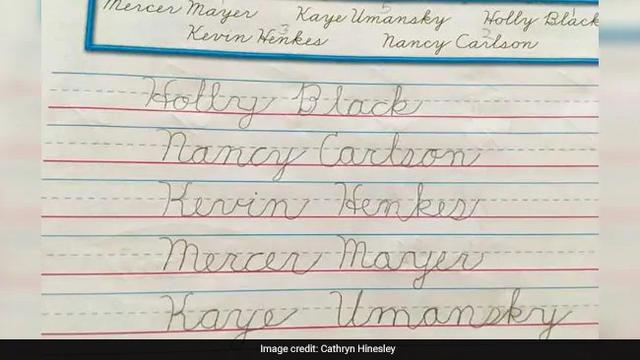 Mercer Mayer Kaye Umansky Holly Black
Kevin Henkes Nancy Carlson
Holly Black
Nancy Carlson
Kevin Henkes
Mercer Mayer
Kaye Umansky
Image credit: Cathryn Hinesley